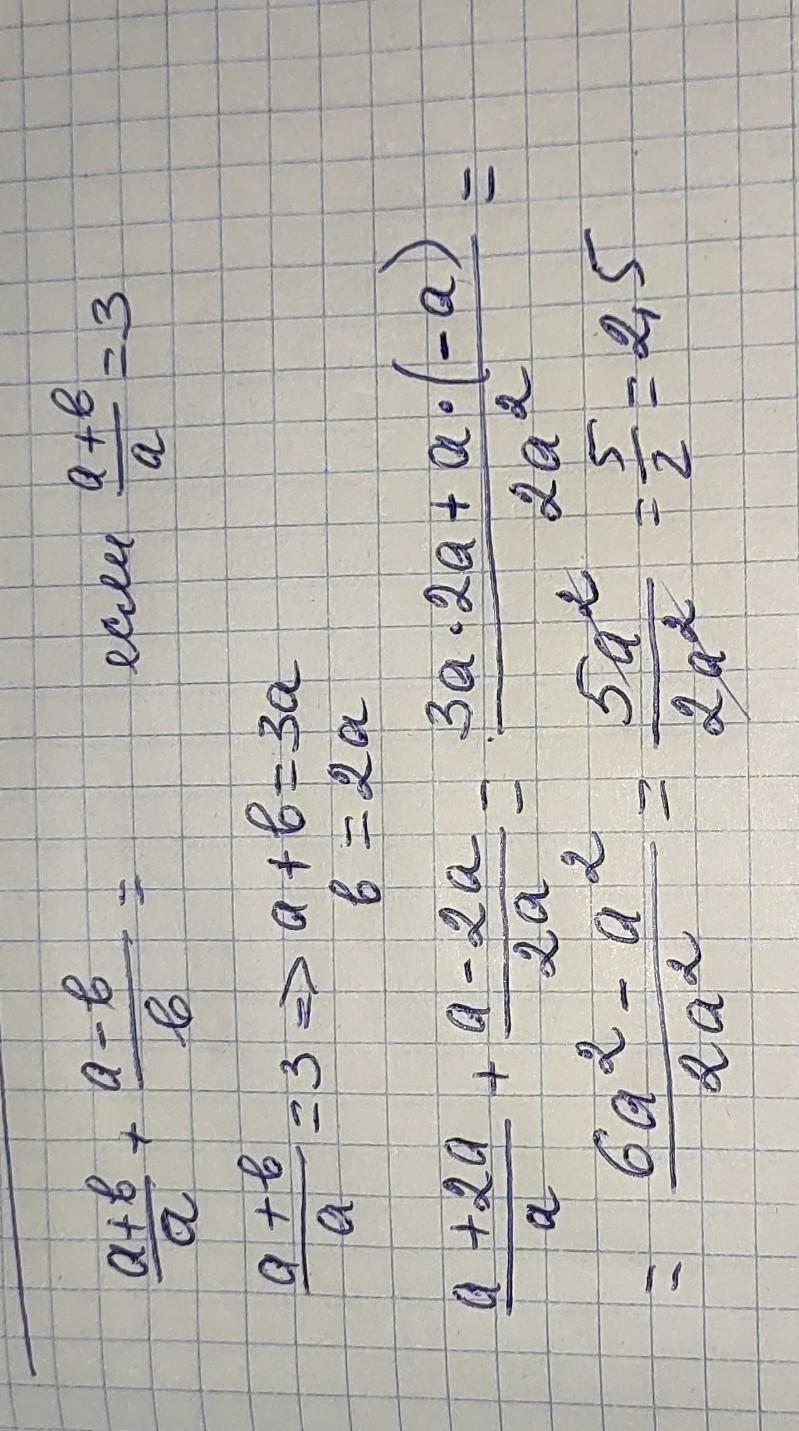 (a+b)/a + (a-b)/b = если (a+b)/a = 3
(a+b)/a = 3 => a+b=3a
b=2a
(a+2a)/a + (a-2a)/2a = (3a·2a+a·(-a))/2a² =
= (6a²-a²)/2a² = 5a²/2a² = 5/2 = 2,5